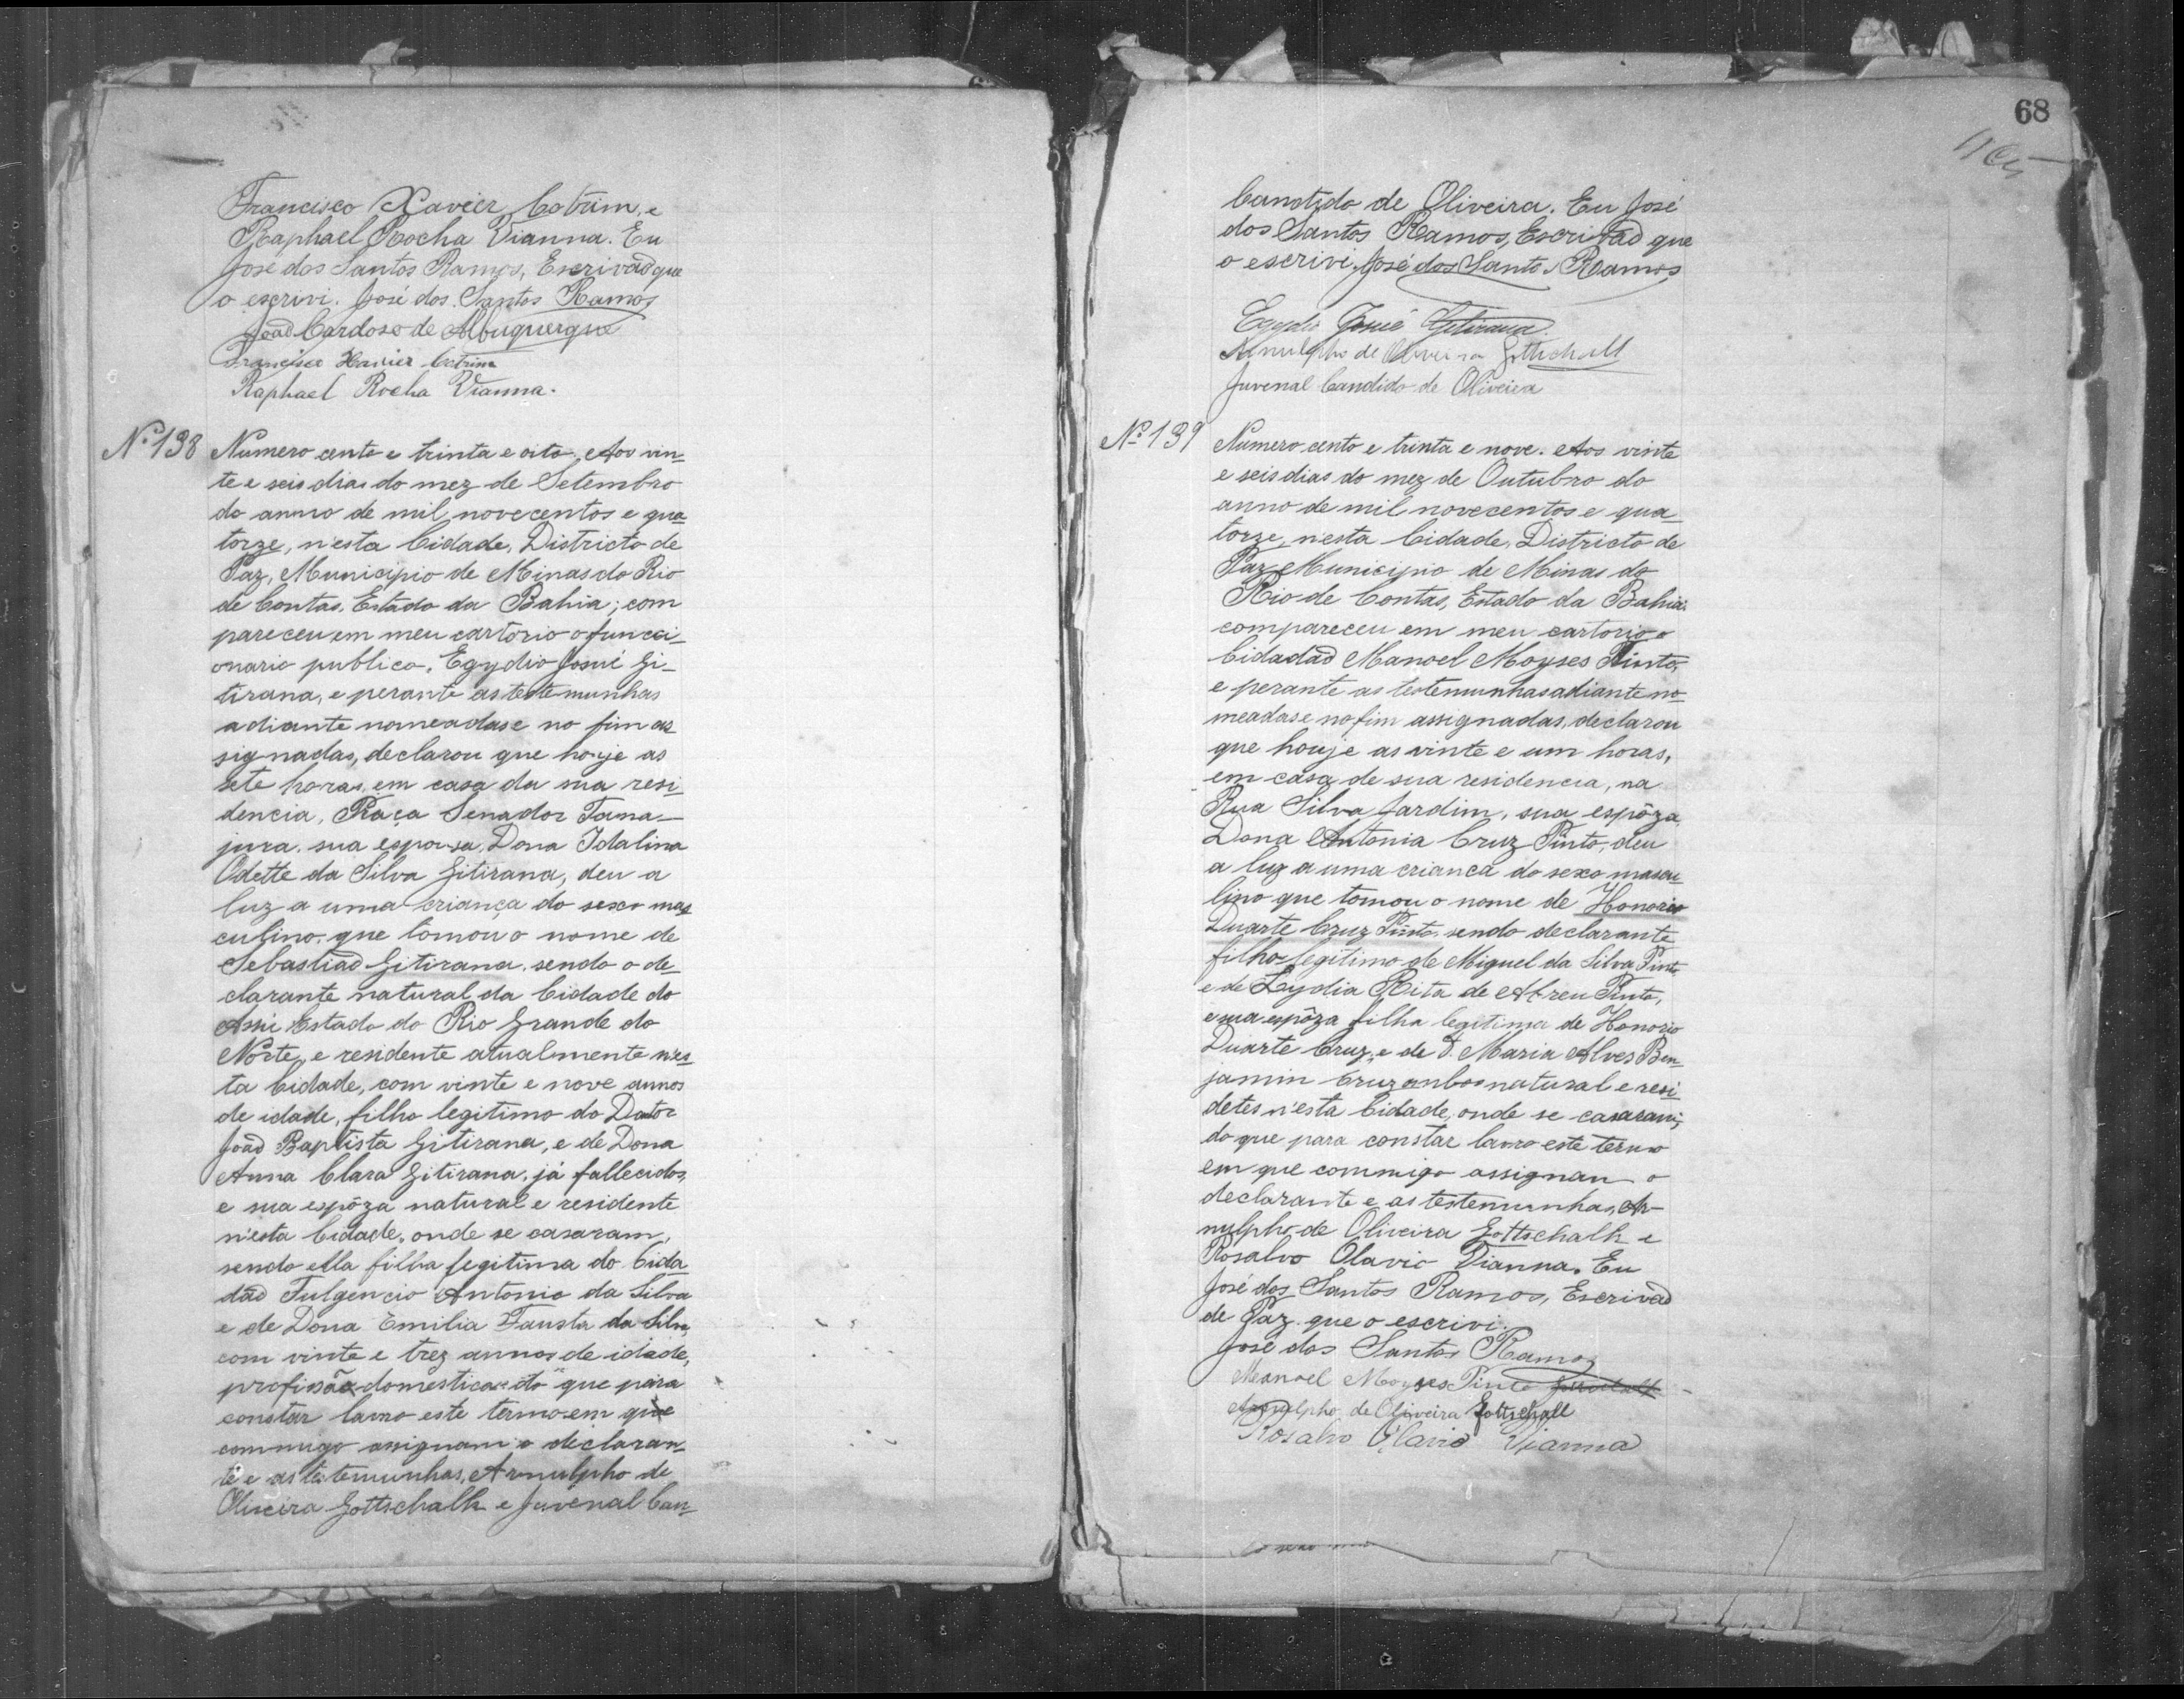 Francisco Xavier Cotrim, e
Raphael Rocha Vianna. Eu
José dos Santos Ramos, Escrivaõ que
o escrivi. José dos Santos Ramos
Joaõ Cardoso de Albuquerque
Francisco Xavier Cotrim
Raphael Rocha Vianna.
Nº 138 Numero cento e trinta e oito. Aos vin-
te e seis dias do mez de Setembro
do anno de mil novecentos e qua-
torze, n'esta Cidade, Districto de
Paz, Municipio de Minas do Rio
de Contas, Estado da Bahia; com
pareceu em meu cartorio o funcci-
onario publico, Egydio Josué Gi-
tirana, e perante as testemunhas
adiante nomeadas e no fim as-
signadas, declarou que houje as
sete horas, em casa da sua resi-
dencia, Praça Senador Tama-
jura, sua esposa, Dona Idalina
Odette da Silva Gitirana, deu a
luz a uma criança do sexo mas-
culino, que tomou o nome de
Sebastiaõ Gitirana, sendo o de-
clarante natural da Cidade do
Assú Estado do Rio Grande do
Norte, e residente atualmente n'es-
ta Cidade, com vinte e nove annos
de idade, filho legitimo do Dotor
Joaõ Baptista Gitirana, e de Dona
Anna Clara Gitirana, já fallecidos,
e sua espôza natural e residente
n'esta Cidade, onde se casaram,
sendo ella filha legitima do Cida-
dáõ Fulgencio Antonio da Silva
e de Dona Emilia Fausta da Silva,
com vinte e trez annos de idade,
profissão domestica do que para
constar lavro este termo em que
commigo assignam o declaran-
te e as testemunhas, Arnulpho de
Oliveira Gottschalk e Juvenal Can-
68
Candido de Oliveira. Eu José
dos Santos Ramos, Escrivaõ que
o escrivi. José dos Santos Ramos
Egydio Josué Gitirana.
Arnulpho de Oliveira Gottschall
Juvenal Candido de Oliveira
Nº 139 Numero cento e trinta e nove. Aos vinte
e seis dias do mez de Outubro do
anno de mil novecentos e qua-
torze, n'esta Cidade, Districto de
Paz Municipio de Minas do
Rio de Contas, Estado da Bahia,
compareceu em meu cartorio o
Cidadaõ Manoel Moyses Pinto,
e perante as testemunhas adiante no-
meadas e no fim assignadas, declarou
que houje as vinte e um horas,
em casa de sua residencia, na
Rua Silva Jardim, sua espôza
Dona Antonia Cruz Pinto, deu
a luz a uma criança do sexo mascu-
lino que tomou o nome de Honorio
Duarte Cruz Pinto, sendo declarante
filho legitimo de Miguel da Silva Pinto
e de Lydia Rita de Abreu Pinto,
e sua espôza filha legitima de Honorio
Duarte Cruz, e de D. Maria Alves Ben-
jamin Cruz ambos natural e resi-
detes n'esta Cidade, onde se casaram;
do que para constar lavro este termo
em que commigo assignam o
declarante e as testemunhas, Ar-
nulpho de Oliveira Gottschalk e
Rosalvo Olavio Vianna. Eu
José dos Santos Ramos, Escrivaõ
de Paz que o escrivi.
José dos Santos Ramos
Manoel Moyses Pinto
Arnulpho de Oliveira Gottschall
Rosalvo Olavio Vianna